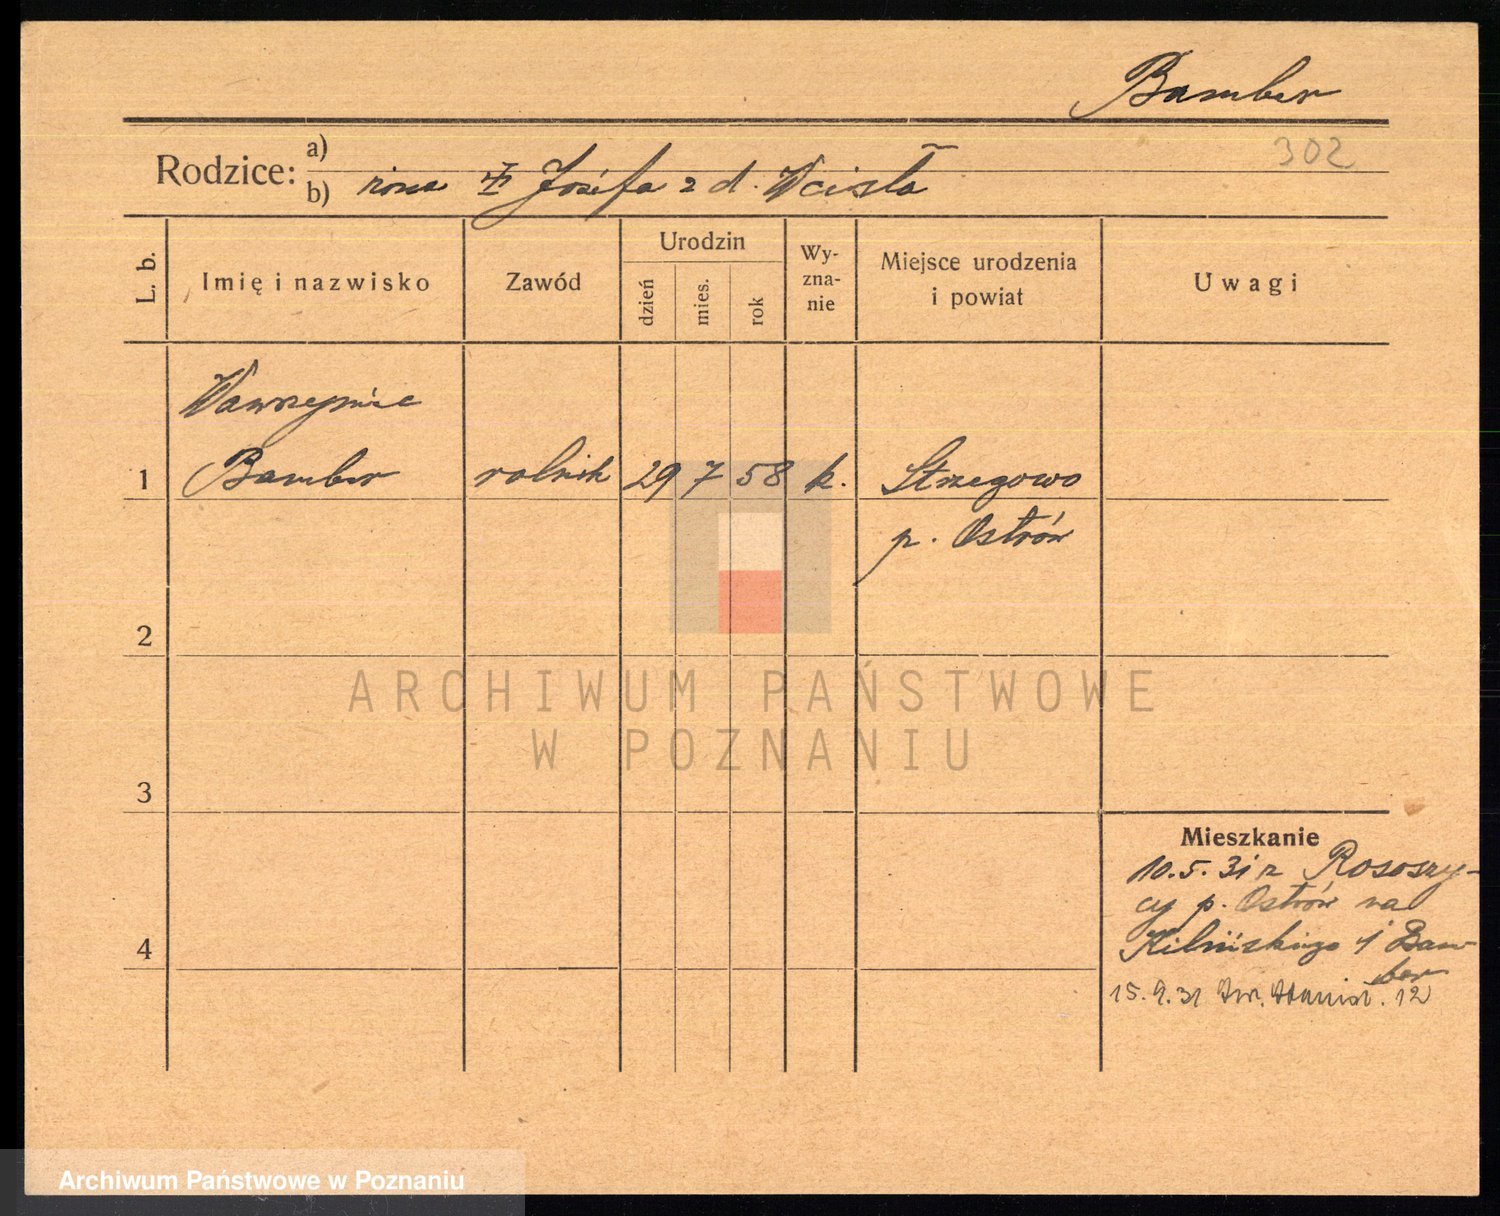 Bamber
302
Rodzice: a)
b) żona ‡ Józefa z d. Wcisła
L. b.
Imię i nazwisko
Zawód
Urodzin
dzień
mies.
rok
Wy-
zna-
nie
Miejsce urodzenia
i powiat
Uwagi
Wawrzyniec
1 Bamber rolnik 29 7 58 k. Strzegowo
p. Ostrów
2
ARCHIWUM PAŃSTWOWE
W POZNANIU
3
Mieszkanie
10.5.31 z Rososzy-
cy p. Ostrów na
4 Kilińskiego 1 Bam-
ber
15.9.31 Św. Stanisł. 12
Archiwum Państwowe w Poznaniu